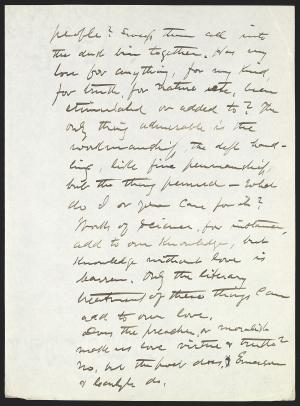 people? Sweep them all into
the dust bin together. Has my
love for anything, for my kind,
for truth, for nature etc, been
stimulated or added to? The
only thing admirable is the
workmanship, the deft hand-
ling, like fine penmanship,
but the thing penned — what
do I or you care for it?
Works of science, for instance,
add to our knowledge, but
knowledge without love is
barren. Only the literary
treatment of these things can
add to our love.
Does the preacher, or moralist
make us love virtue & truth?
No, but the poet does, & Emerson
& Carlyle do.